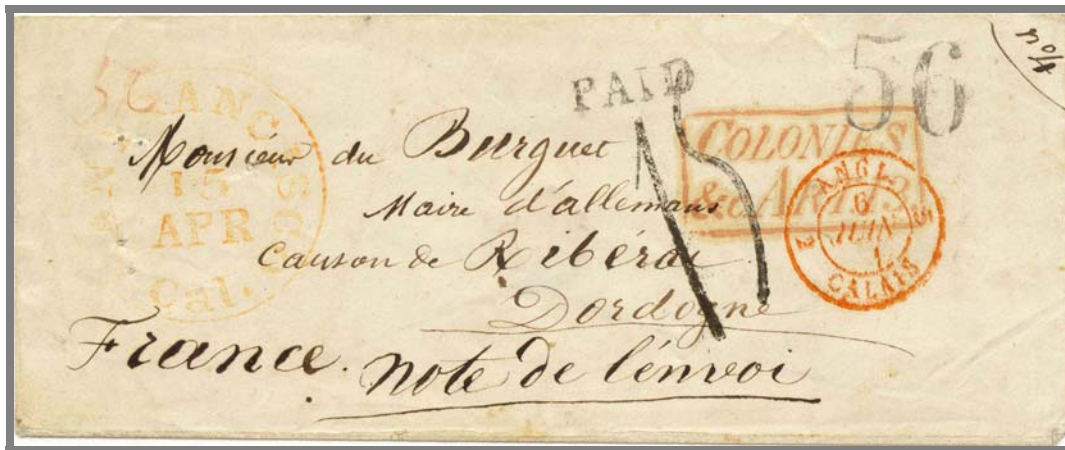 PAID
56
56
SAN FRANCISCO
15
APR
Cal.
COLONIES
&c ART 13
ANGL.
6
JUIN
CALAIS
15
Monsieur du Burguet
Maire d'allemans
Canton de Ribérac
Dordogne
France. note de l'envoi